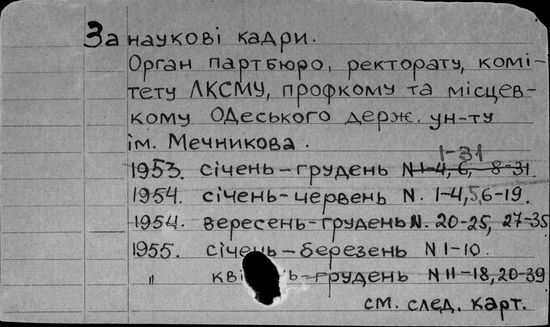 За наукові кадри.
Орган партбюро, ректорату, комі-
тету ЛКСМУ, профкому та місцев-
кому Одеського держ. ун-ту
ім. Мечникова.
1-31
1953. січень-грудень N 1-4, 6, 8-31.
1954. січень-червень N. 1-4,5,6-19.
1954. вересень-грудень N. 20-25, 27-35
1955. січень-березень N 1-10.
" -грудень N 11-18, 20-39
см. след. карт.